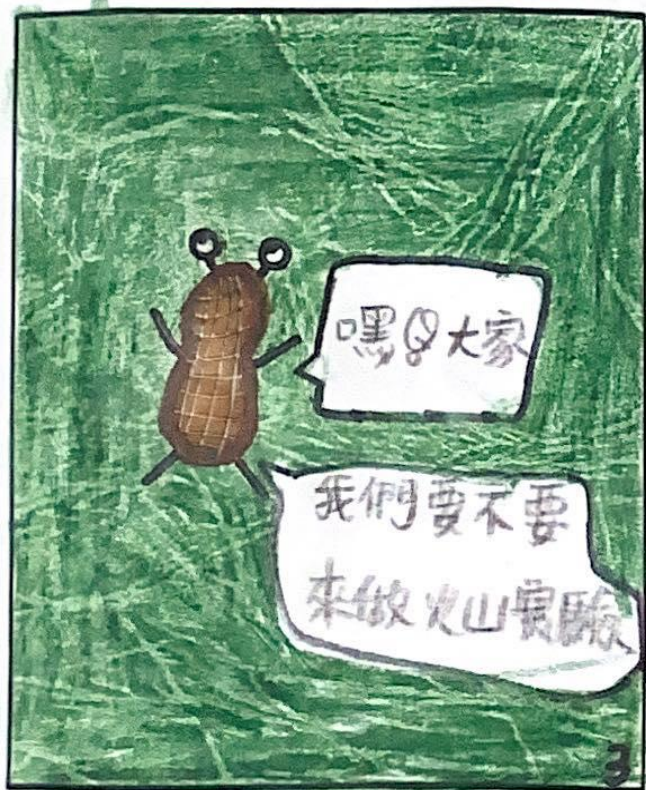 嘿大家
我們要不要
來做火山實驗
3